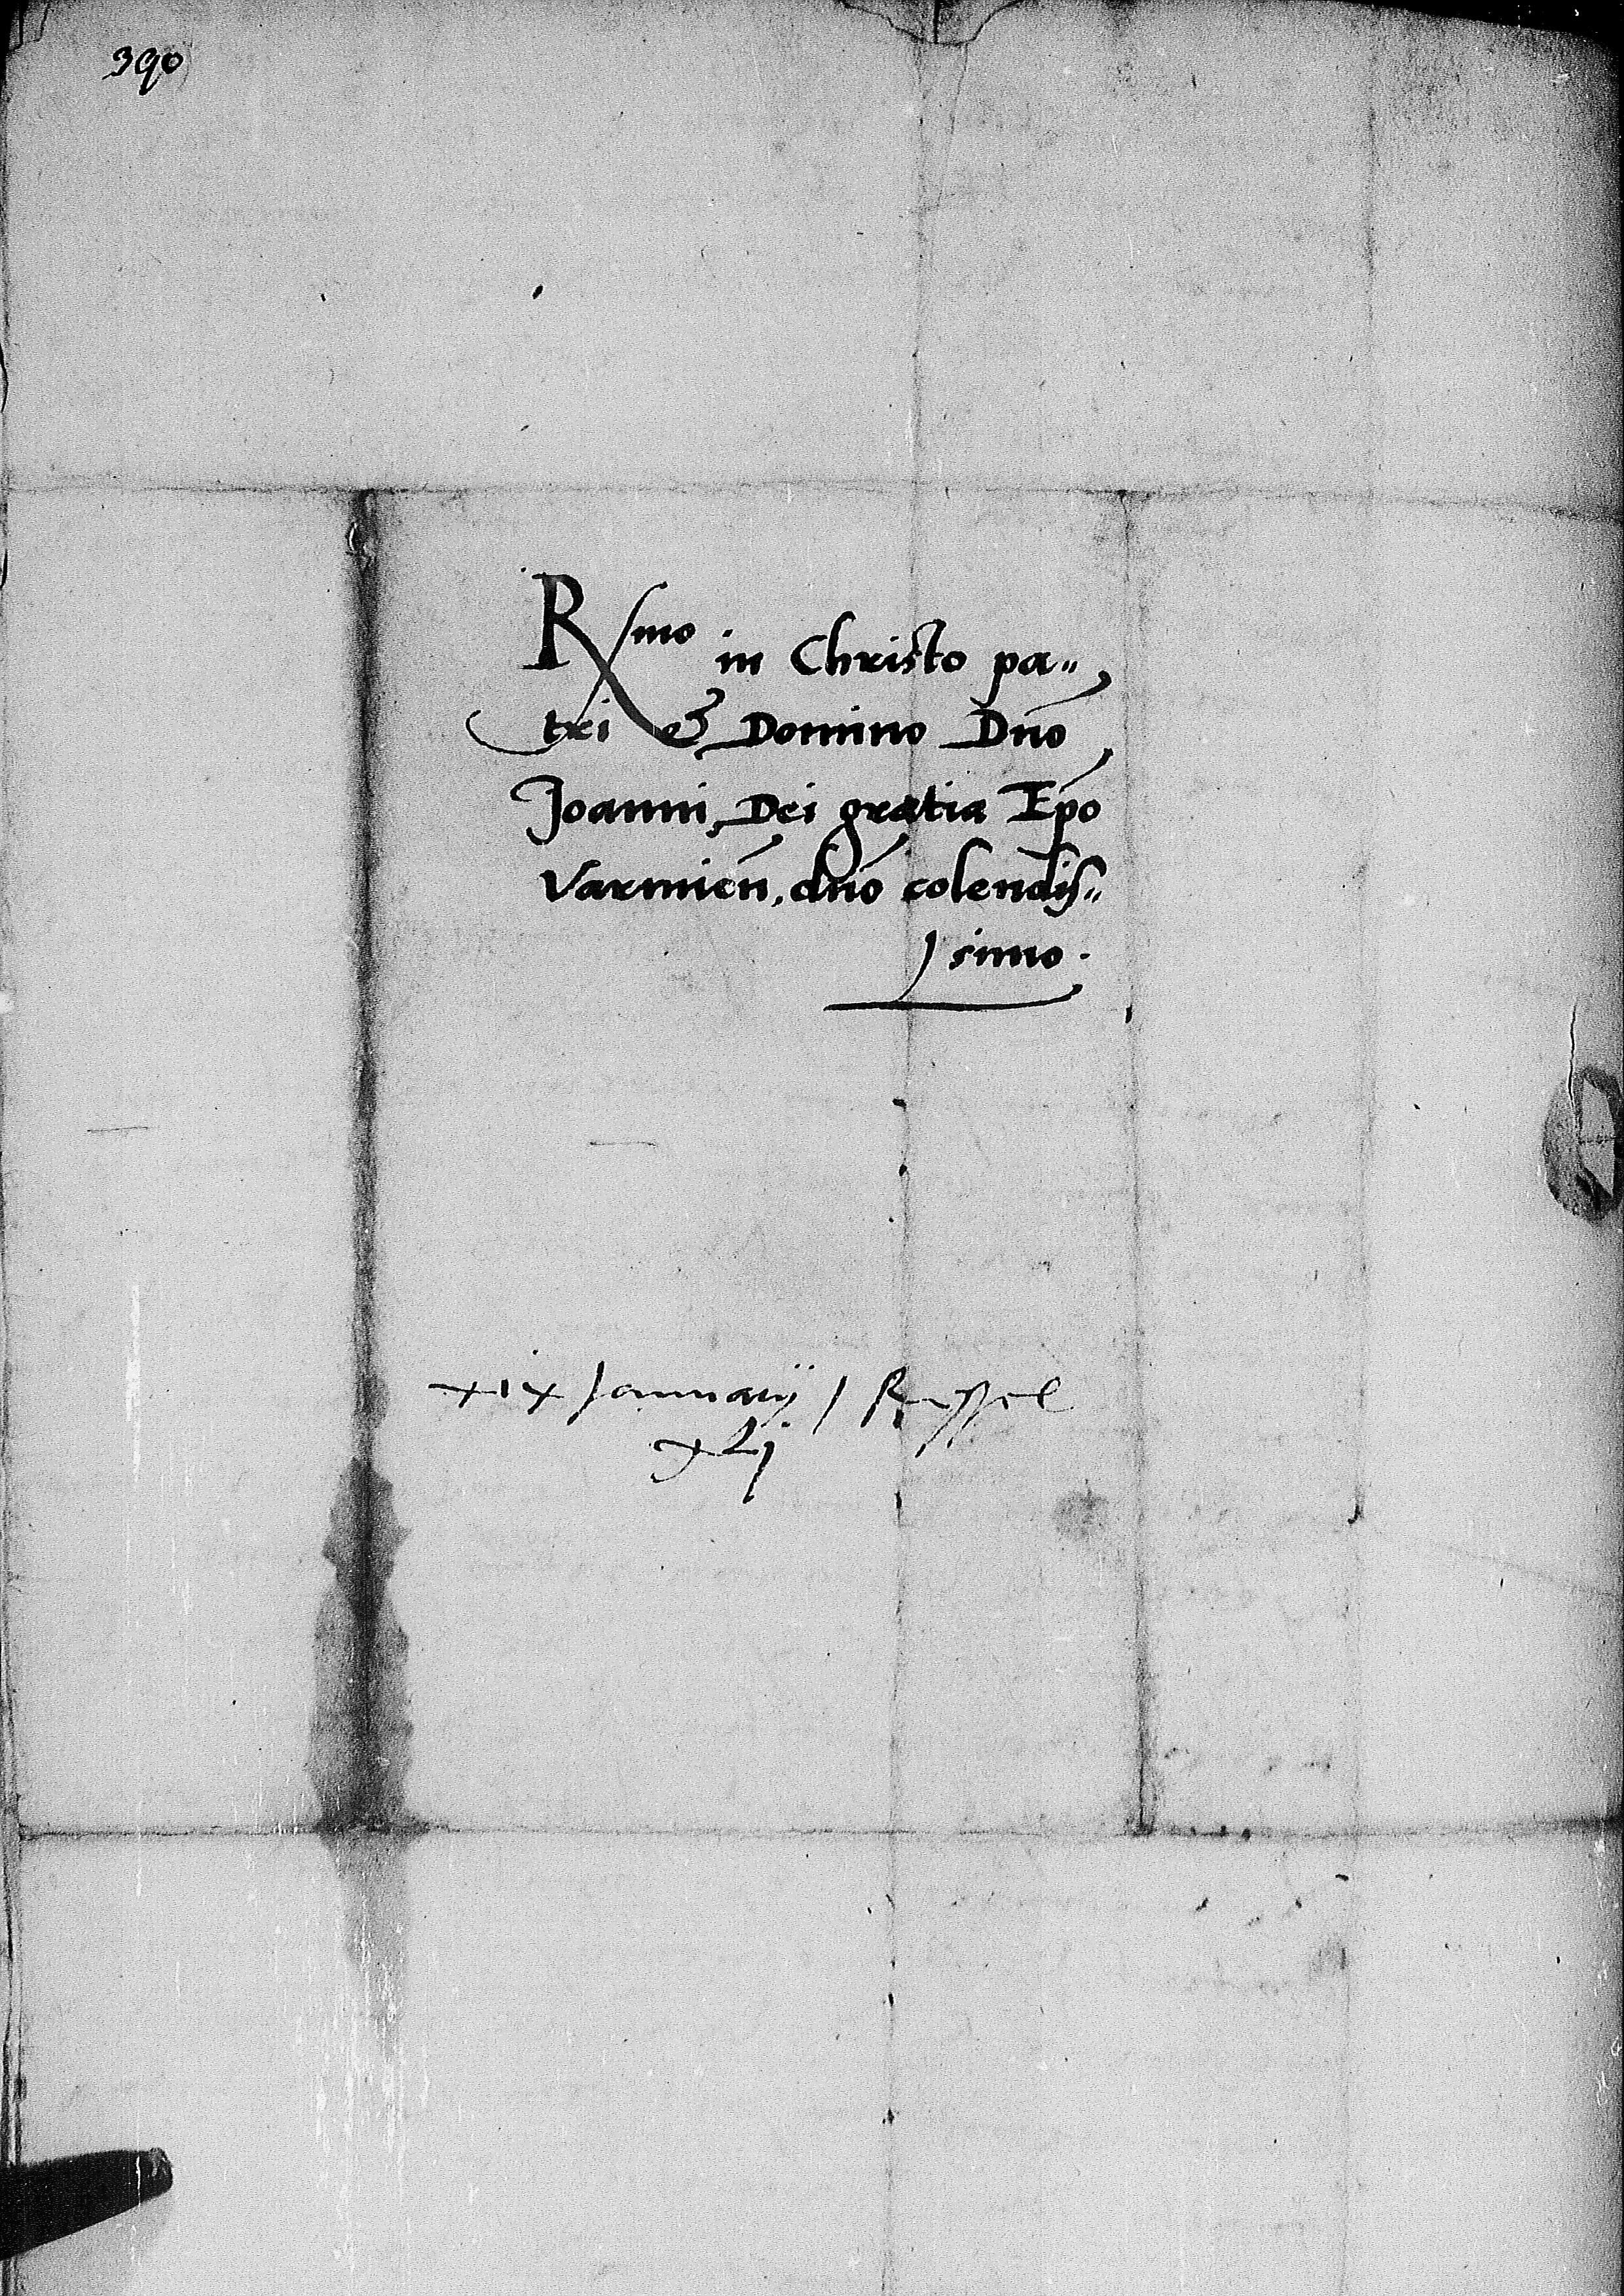 390
Rsmo in Christo pa„
tri & Domino Dno
Joanni, Dei gratia Epo
Varmien, dno colendis„
simo.
xix Januarij / Ressel
xLj